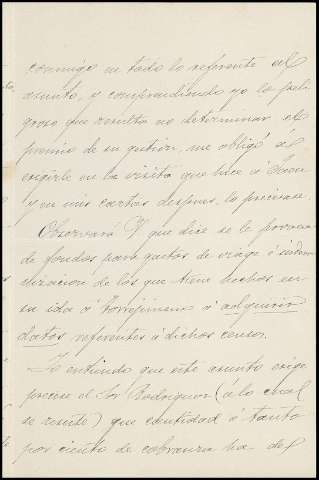 conmigo en todo lo referente al
asunto, y comprendiendo yo lo peli-
groso que resulta no determinar el
premio de su gestion, me obligó á
exigirle en la visita que hice á
y en mis cartas despues, lo precisase.
Observará V que dice se le provea
de fondos para gastos de viage é indem-
nizacion de los que tiene hechos en
su ida á Torrejimeno á adquirir
datos referentes á dichos censos.
Yo entiendo que este asunto exige
precise el Sor Rodriguez (á lo cual
se resiste) que cantidad ó tanto
por ciento de cobranza ha de